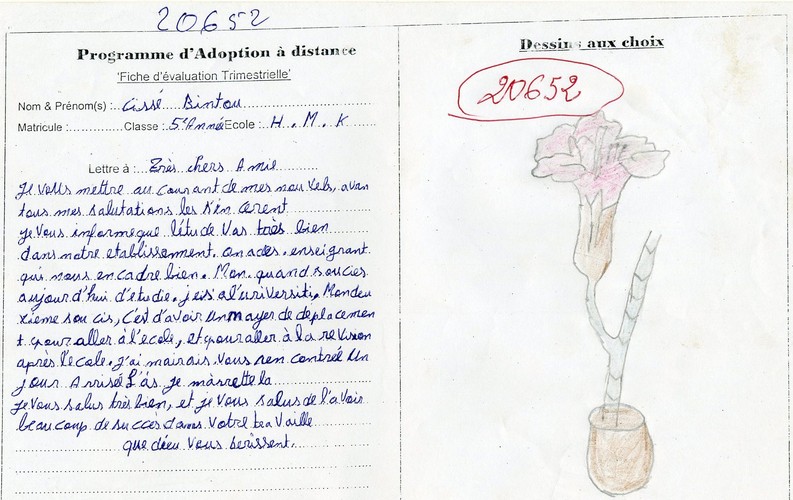 20652
Programme d'Adoption à distance
'Fiche d'évaluation Trimestrielle'
Nom & Prénom(s) :.. Cissé Bintou
Matricule :............Classe : 5e Année Ecole : H. M. K
Lettre à :... Très chers Amie
Je vous mettre au courant de mes nouvels, avan
tous mes salutations les sincerent
je vous informe que l'étude vas très bien
dans notre etablissement. on a des enseignant
qui nous encadre bien. Mon quand soucies
aujourd'hui d'etudie. jusi a l'université. Mon deu
xieme soucis, c'est d'avoir un moyer de deplacemen
t pour aller à l'ecole, et pour aller à la revision
après l'ecole. j'ai mairais vous rencontré un
jour Arrisé Làs je m'arrette la
je vous salus très bien, et je vous salus de l'avoir
beaucoup de succès dans votre travaille
que dieu vous benissent.
Dessins aux choix
20652